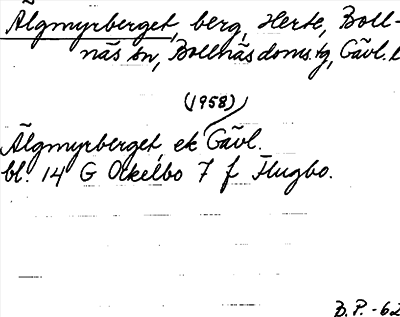 Älgmyrberget, berg, Herte, Boll-
näs sn, Bollnäs doms.tg, Gävl. l
(1958)
Älgmyrberget, ek Gävl.
bl. 14 G Ockelbo 7 f Flugbo.
B.P. -62